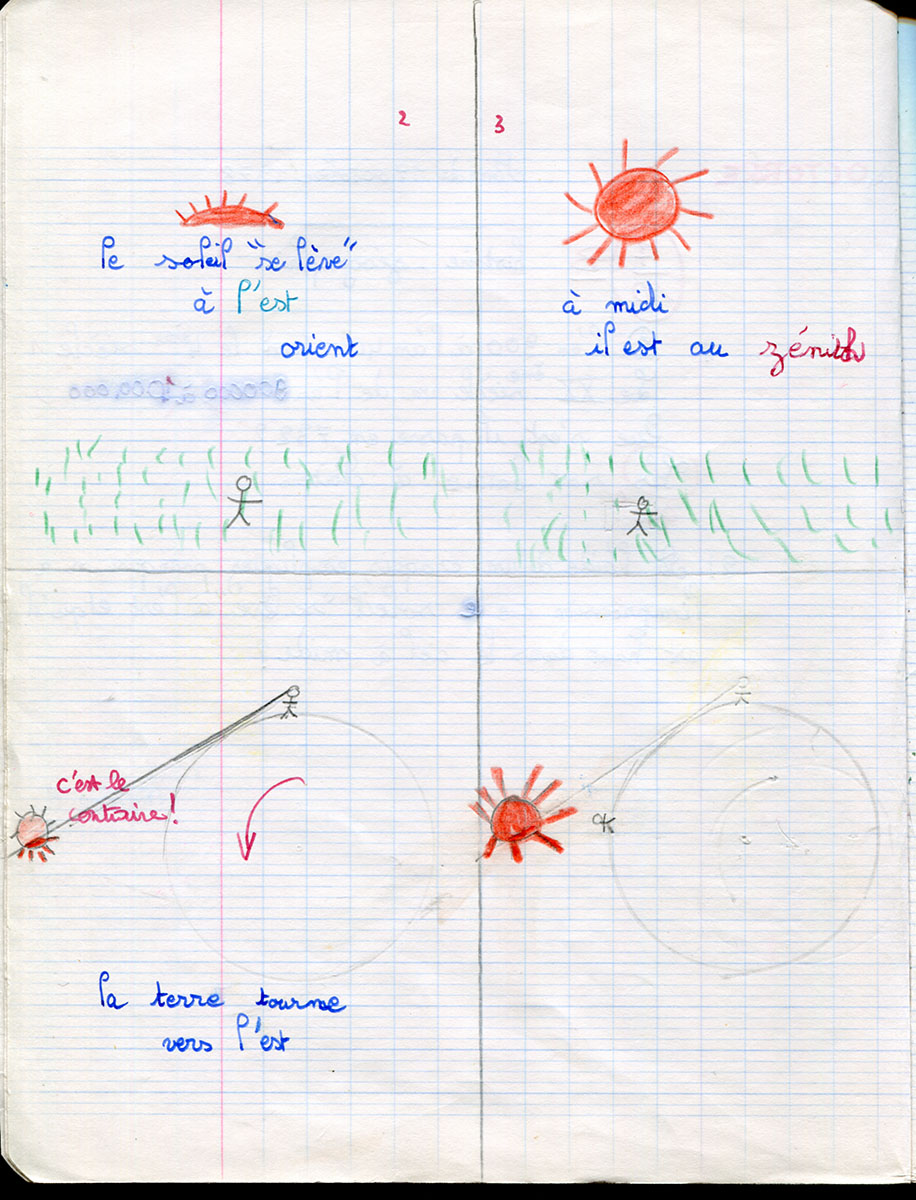 2
le soleil "se lève"
à l'est
orient
3
à midi
il est au zénith
c'est le
contraire!
la terre tourne
vers l'est